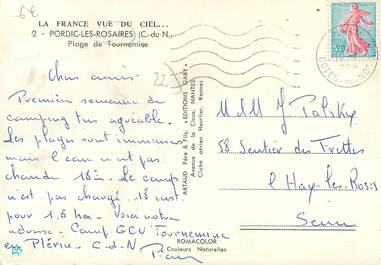 6€
LA FRANCE VUE DU CIEL...
2 - PORDIC-LES-ROSAIRES (C.-du-N.)
Plage de Tournemise
22
Chers amis
Première semaine de
camping très agréable.
Les plages sont immenses
mais l'eau n'est pas
chaude 16=. Le camp
n'est pas chargé. 18 inst
pour 1,6 ha. Voici notre
adresse. Camp GCU Tournemine
en Plérin. C-d-N
ARTAUD Père & Fils, "EDITIONS GABY"
Avenue de la Close, NANTES
Cliché aérien Heurtier, Rennes
ROMACOLOR
Couleurs Naturelles
0,20
COTES-DU-NORD
M & M J Palisky
58 Sentier des Trettes
l'Hay-les-Roses
Seine